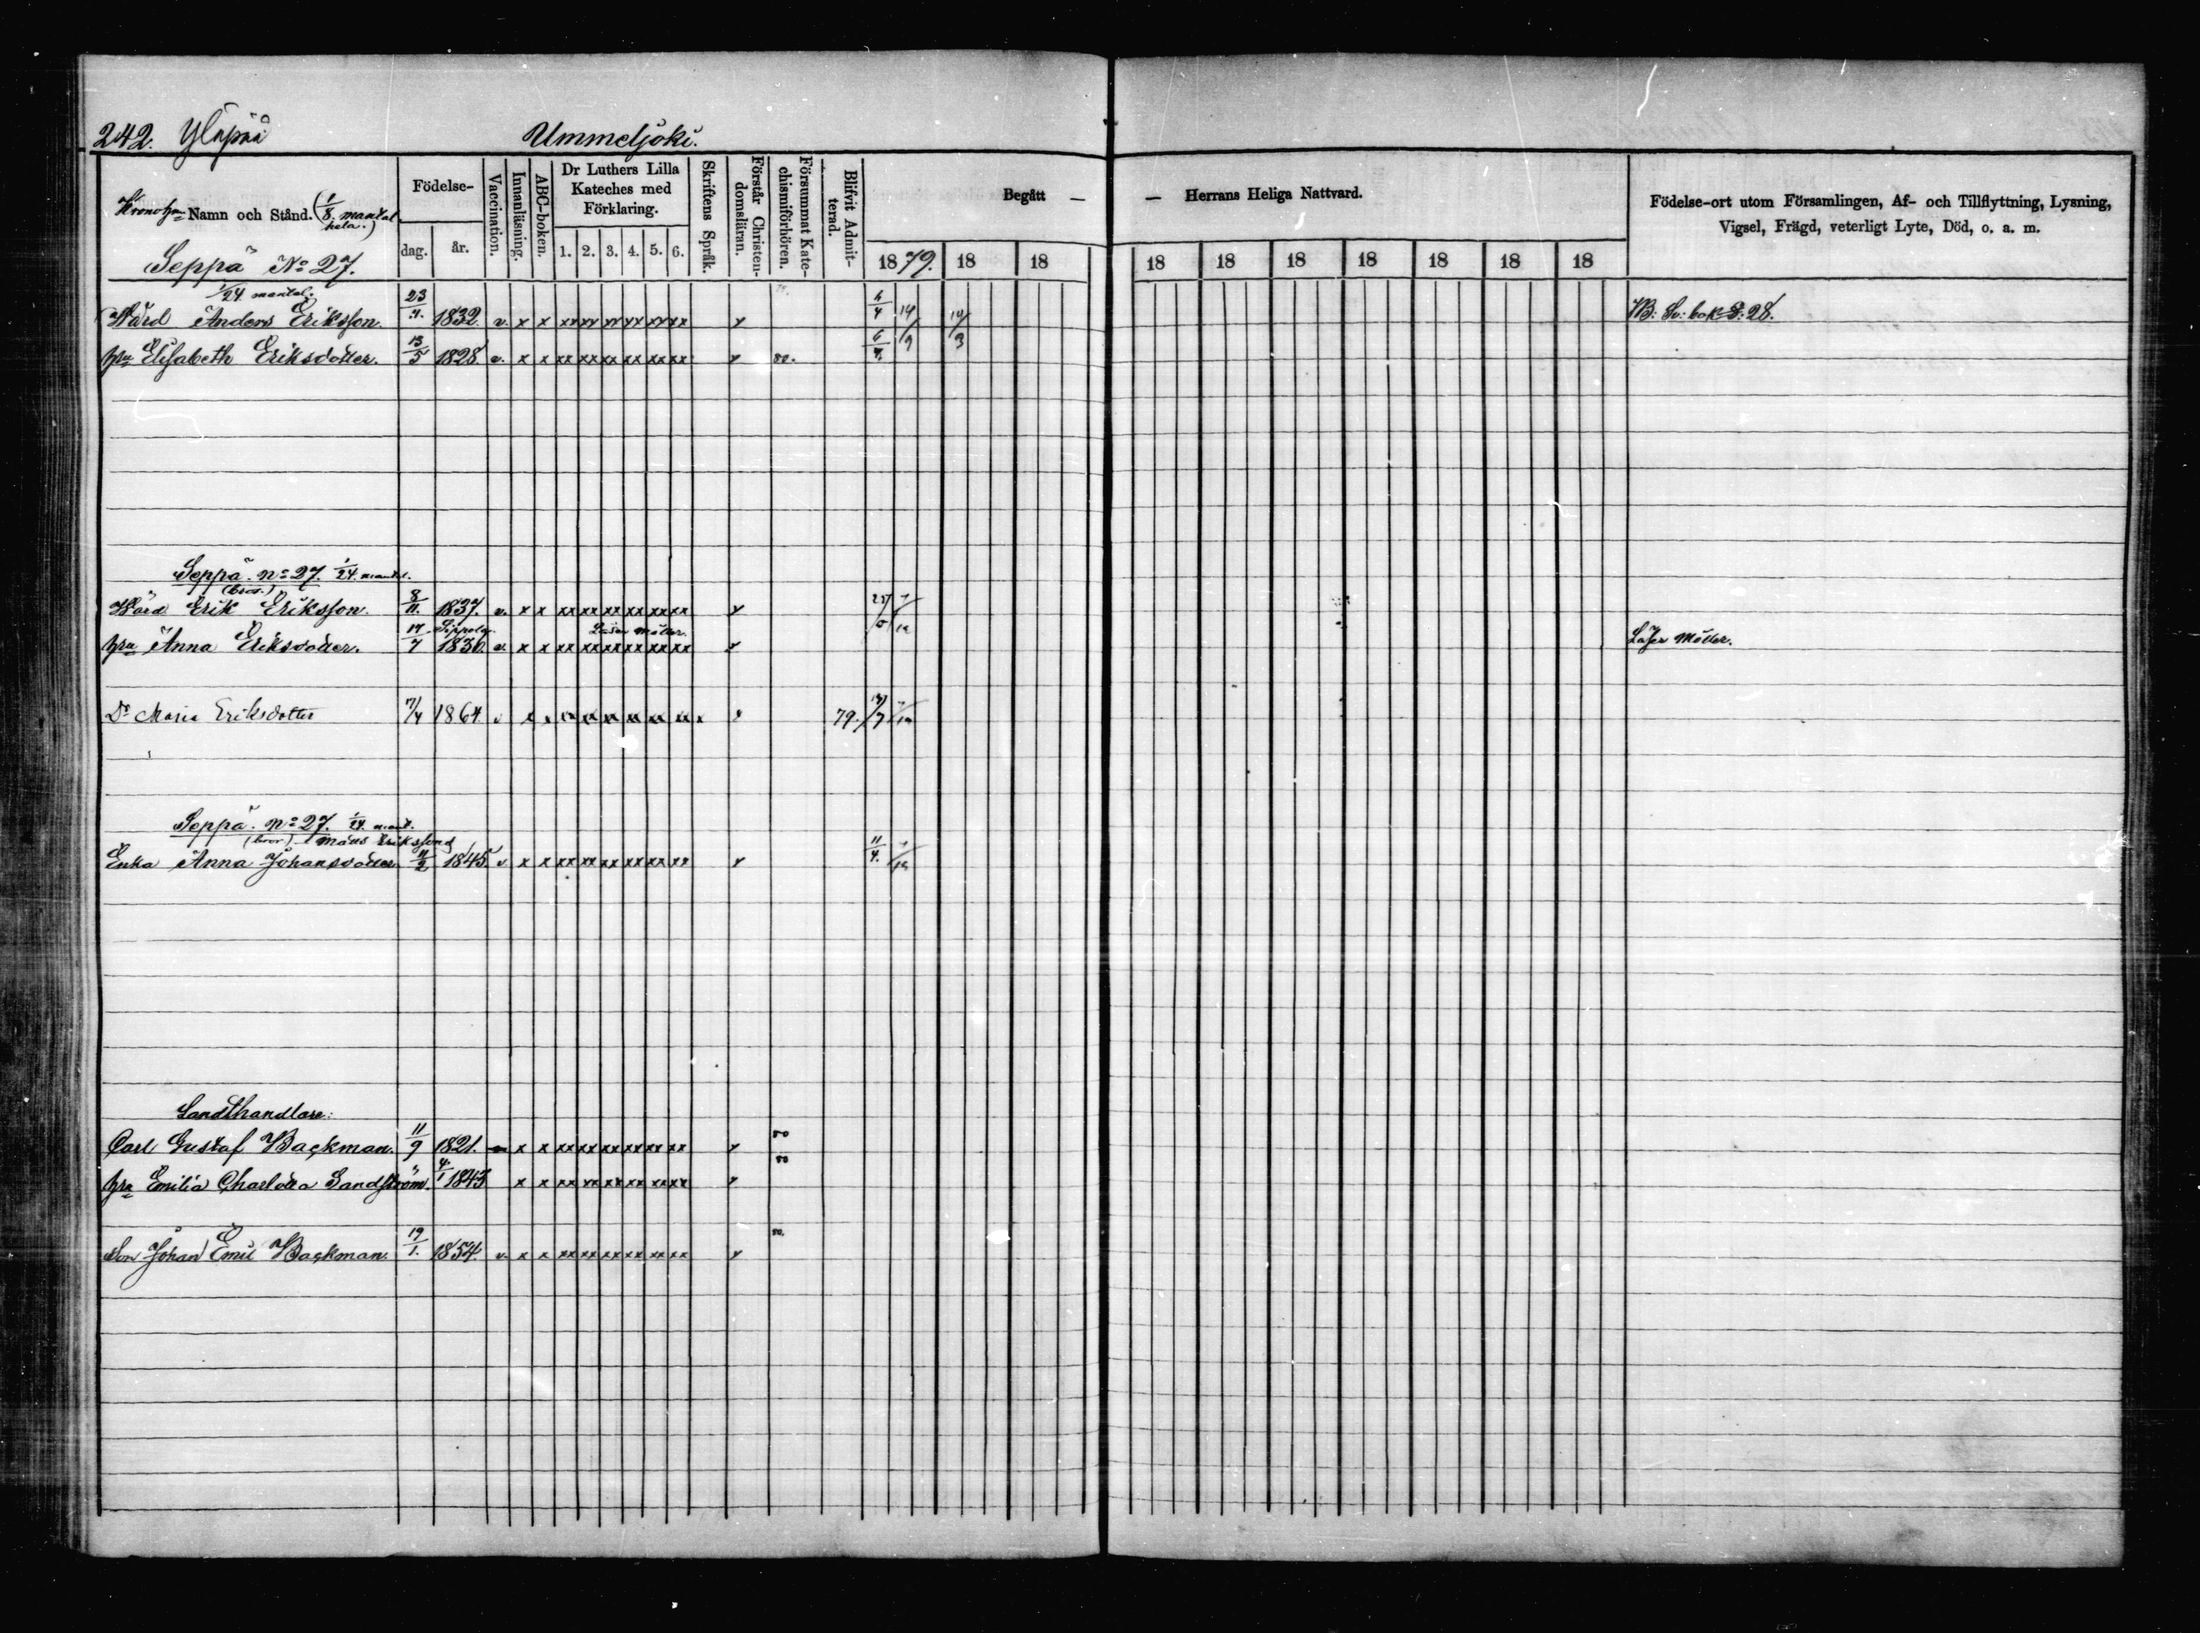 242. Yläpää Ummeljoki.
Kronohn Namn och Stånd. (1/8 mantal hela.)
Födelse-
dag. år.
Vaccination.
Innanläsning.
ABC-boken.
Dr Luthers Lilla Kateches med Förklaring.
1. 2. 3. 4. 5. 6.
Skriftens Språk.
Förstår Christendomsläran.
Försummat Katechismiförhören.
Blifvit Admitterad.
Begått — — Herrans Heliga Nattvard.
1879. 18 18 18 18 18 18 18 18 18
Födelse-ort utom Församlingen, Af- och Tillflyttning, Lysning,
Vigsel, Frägd, veterligt Lyte, Död, o. a. m.
Seppä No 27.
1/24 mantal.
Wärd Anders Eriksson. 1832. v. x x xx xx xx xx xx xx 6/4 19/9 19/3
hru Elisabeth Eriksdotter. 13/5 1828. v. x x xx xx xx xx xx xx 80.
Seppä. no 27. 1/24. mantl.
(bror.)
Wärd Erik Eriksson. 8/11. 1837. v. x x xx xx xx xx xx xx
Sippola. Läser måttl.
hru Anna Eriksdotter. 17/7 1830. v. x x xx xx xx xx xx xx
Dr Maria Eriksdotter 7/4 1864. v x x xx xx xx xx xx xx x 79.
Seppä. no 27. 1/24. mant.
(bror) Matts Erikssons
Enka Anna Johansdotter 11/2 1845. v x x xx xx xx xx xx xx 11/4.
Landthandlare:
Carl Gustaf Backman. 11/9 1821. x x xx xx xx xx xx xx 80
hru Emilia Charlotta Sandström. 4/1 1843 x x xx xx xx xx xx xx 80
Son Johan Emil Backman. 19/1. 1854. v. x x xx xx xx xx xx xx 80.